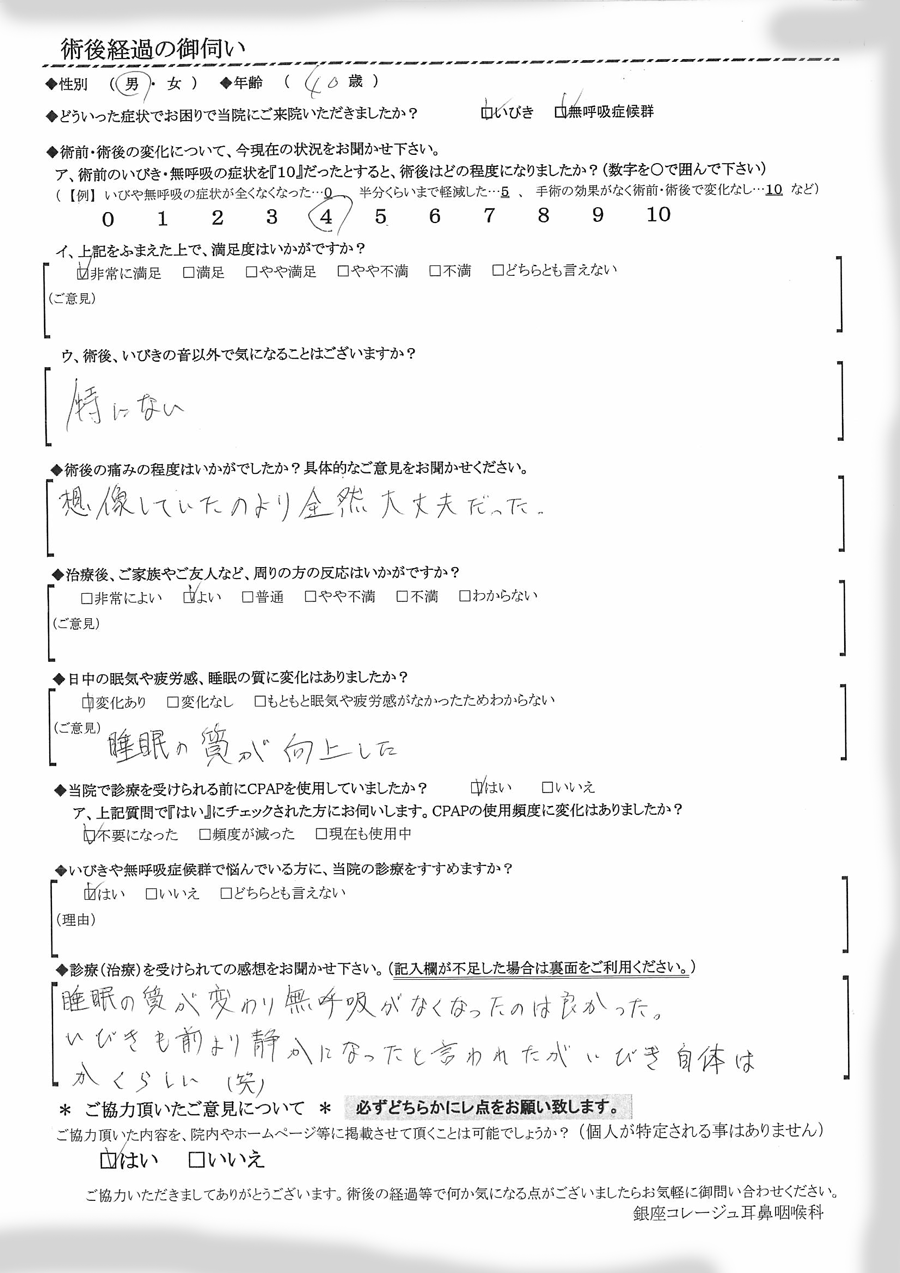 術後経過の御伺い
◆性別 （ 男 ・ 女 ） ◆年齢 （ 40 歳 ）
◆どういった症状でお困りで当院にご来院いただきましたか？ ☑いびき ☑無呼吸症候群
◆術前・術後の変化について、今現在の状況をお聞かせ下さい。
ア、術前のいびき・無呼吸の症状を『10』だったとすると、術後はどの程度になりましたか？（数字を○で囲んで下さい）
（ 【例】 いびや無呼吸の症状が全くなくなった…0 、 半分くらいまで軽減した…5 、 手術の効果がなく術前・術後で変化なし…10 など）
0 1 2 3 4 5 6 7 8 9 10
イ、上記をふまえた上で、満足度はいかがですか？
☑非常に満足 □満足 □やや満足 □やや不満 □不満 □どちらとも言えない
（ご意見）
ウ、術後、いびきの音以外で気になることはございますか？
特にない
◆術後の痛みの程度はいかがでしたか？具体的なご意見をお聞かせください。
想像していたのより全然大丈夫だった。
◆治療後、ご家族やご友人など、周りの方の反応はいかがですか？
□非常によい ☑よい □普通 □やや不満 □不満 □わからない
（ご意見）
◆日中の眠気や疲労感、睡眠の質に変化はありましたか？
☑変化あり □変化なし □もともと眠気や疲労感がなかったためわからない
（ご意見） 睡眠の質が向上した
◆当院で診療を受けられる前にCPAPを使用していましたか？ ☑はい □いいえ
ア、上記質問で『はい』にチェックされた方にお伺いします。CPAPの使用頻度に変化はありましたか？
☑不要になった □頻度が減った □現在も使用中
◆いびきや無呼吸症候群で悩んでいる方に、当院の診療をすすめますか？
☑はい □いいえ □どちらとも言えない
（理由）
◆診療（治療）を受けられての感想をお聞かせ下さい。（記入欄が不足した場合は裏面をご利用ください。）
睡眠の質が変わり無呼吸がなくなったのは良かった。
いびきも前より静かになったと言われたがいびき自体は
かくらしい （笑）
＊ ご協力頂いたご意見について ＊ 必ずどちらかにレ点をお願い致します。
ご協力頂いた内容を、院内やホームページ等に掲載させて頂くことは可能でしょうか？（個人が特定される事はありません）
☑はい □いいえ
ご協力いただきましてありがとうございます。術後の経過等で何か気になる点がございましたらお気軽に御問い合わせください。
銀座コレージュ耳鼻咽喉科